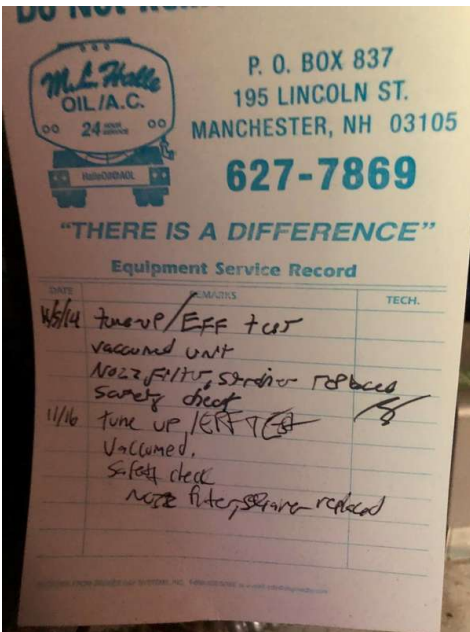 DO NOT
M.L. Halle
OIL/A.C.
24 HOUR SERVICE
HalleOil@AOL
P. O. BOX 837
195 LINCOLN ST.
MANCHESTER, NH 03105
627-7869
"THERE IS A DIFFERENCE"
Equipment Service Record
DATE REMARKS TECH.
tune-up/EFF test
vaccumed unit
Nozz, Filter, strainer replaced
Safety check
11/16 tune up /EFF TEst
Vaccumed.
Safety check
Nozz filter, strainer replaced